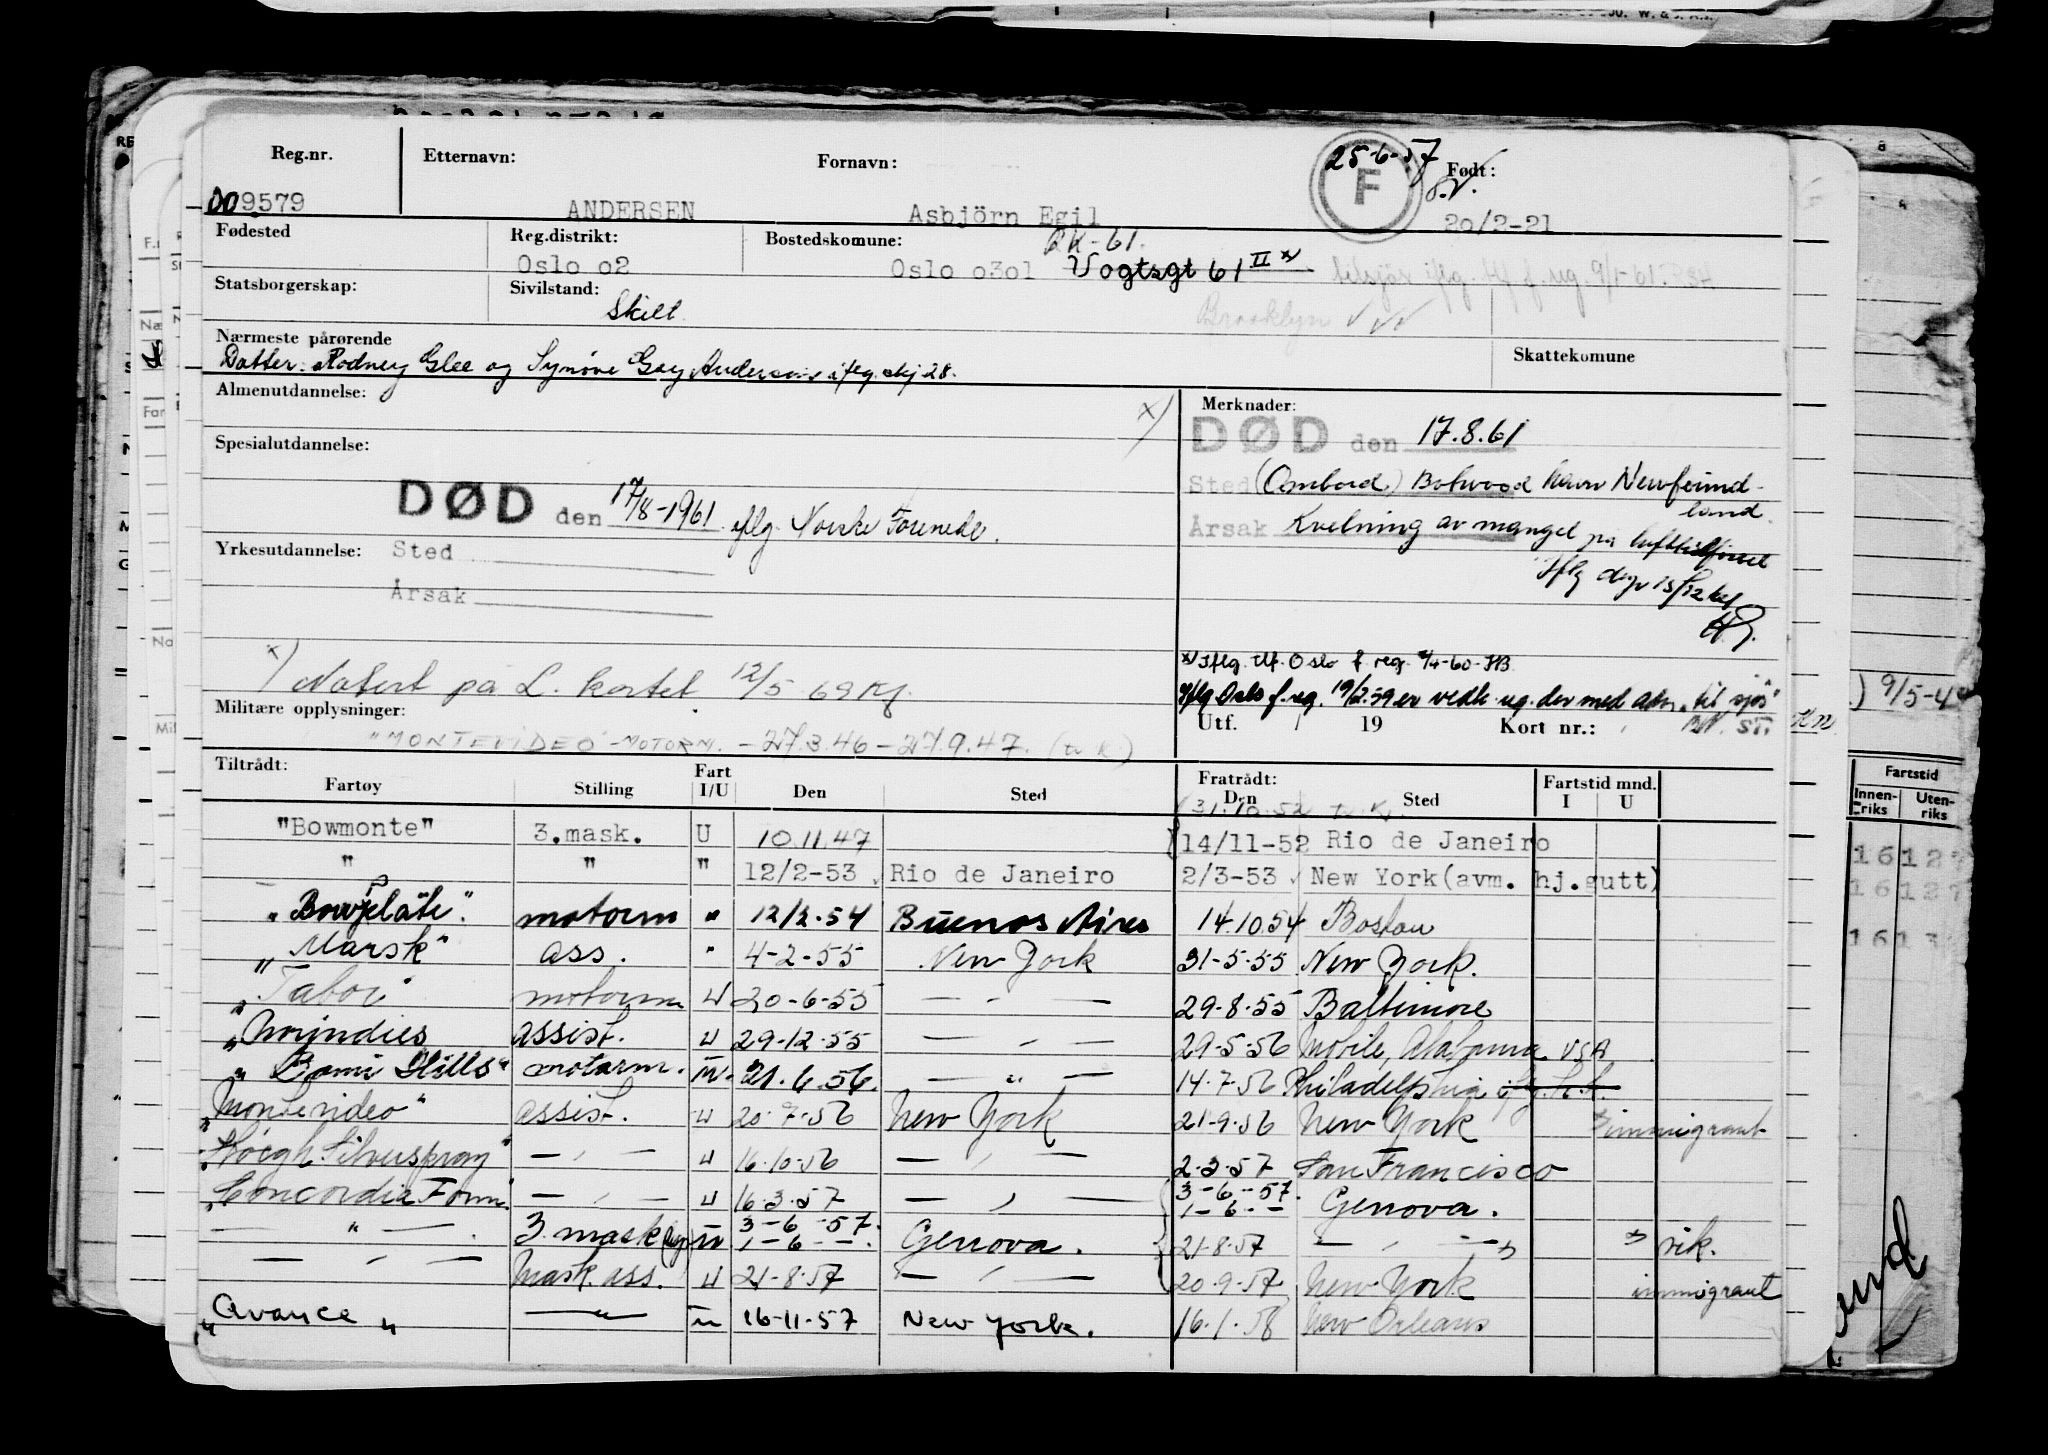 Reg.nr. Etternavn: Fornavn: 25-6-57 Født:
F
009579 ANDERSEN Asbjörn Egil 20/2-21
Fødested Reg.distrikt: Bostedskomune: RK-61.
Oslo o2 Oslo o3o1 Vogtsgt 61 II x)
Statsborgerskap: Sivilstand:
Skilt Brooklyn
Nærmeste pårørende Skattekomune
Datter: Rodney Glee og Synøve Gay Andersen iflg. skj 28.
Almenutdannelse: x) Merknader:
DØD den 17.8.61
Spesialutdannelse:
Sted (Ombord) Botwood havn Newfound-
land.
DØD den 17/8-1961 iflg. Norske Forenede.
Årsak Kvelning av mangel på lufttilførsel
Yrkesutdannelse: Sted
Årsak
x) Notert på L. kortet 12/5 69 Kf.
x) Iflg. tlf. Oslo f. reg. 4-60-HB
Iflg Oslo f.reg. 19/2-59 er vedk. reg. der med adr. "til sjøs"
Militære opplysninger: Utf. / 19 Kort nr.:
"MONTEVIDEO" MOTORM. - 27.3.46 - 27.9.47.
Tiltrådt: Fratrådt: Fartstid mnd.
Fartøy Stilling Fart I/U Den Sted Den Sted I U
31.10.52
"Bowmonte" 3.mask. U 10.11.47 14/11-52 Rio de Janeiro
" " " 12/2-53 Rio de Janeiro 2/3-53 New York(avm. hj.gutt)
"Bowplate". motorm " 12/2-54 Buenos Aires 14.10.54 Boston
"Marsk" ass. " 4-2-55 New York 31-5-55 New York.
"Tabor" motorm U 20-6-55 — " — 29-8-55 Baltimore
"Norindies assist. U 29-12-55 — " — 29-5-56 Mobile, Alabama USA
"Bomi Hills" motorm. U. 21.6.56. — " — 14.7.56 Philadelphia
"Montevideo" assist. U 20-7-56 New York 21-9-56 New York immigrant
"Höegh Silverspray" — " — U 16.10.56 — " — 2.3.57 San Francisco
"Concordia Fonn" — " — U 16.3.57 — " — 3-6-57. 1-6-- Genova.
— " — 3. mask U 3-6-57. 1-6--. Genova. 21-8-57 — " — rik.
— " — Mask. ass. U 21-8-57 — " — 20.9.57 New York immigrant
"Avance" — " — U 16-11-57 New York. 16.1.58 New Orleans
9/5-4
Fartstid
Innen- riks Uten- riks
16 12
16 12
16 13